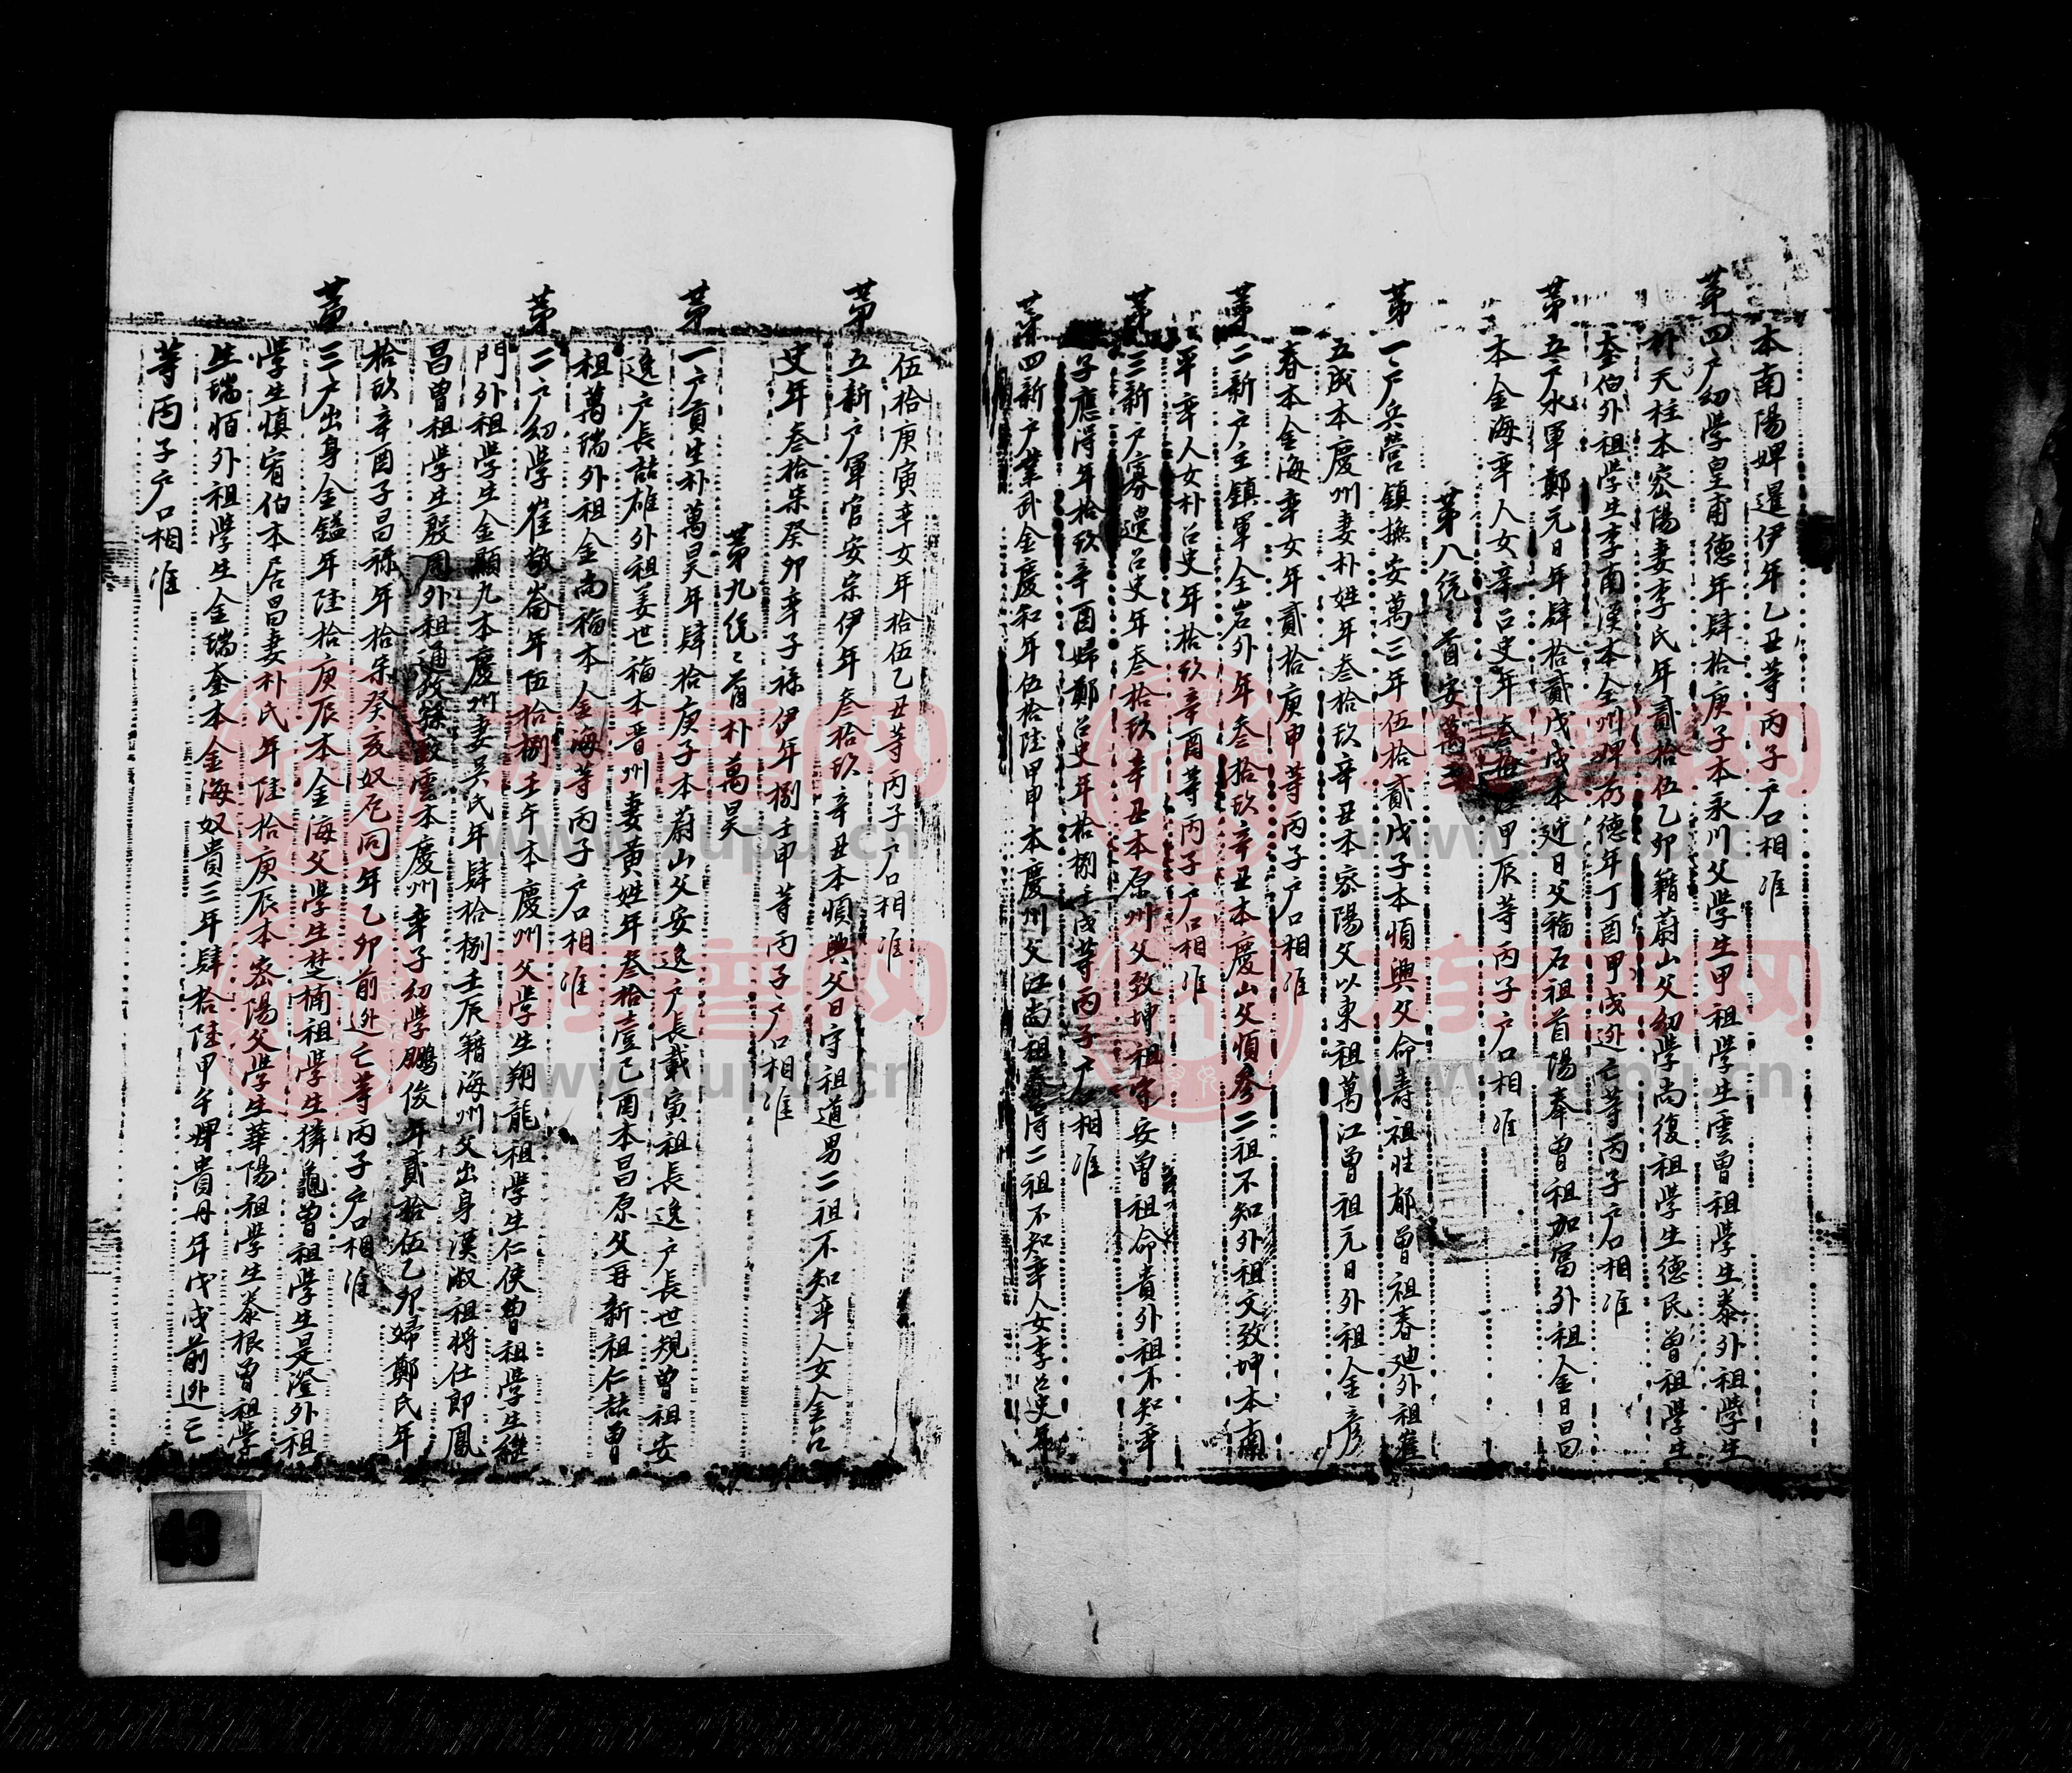 本南陽婢暹伊年乙丑等丙子戶口相准
第四戶幼學皇甫德年肆拾庚子本永川父學生甲祖學生雲曾祖學生泰外祖學生
朴天柱本密陽妻李氏年貳拾伍乙卯籍蔚山父幼學尚復祖學生德民曾祖學生
奎伯外祖學生李南漢本全州婢芿德年丁酉甲戌逃亡等丙子戶口相准
第五戶水軍鄭元日年肆拾貳戊戌本延日父福石祖首陽奉曾祖加富外祖金日昌
本金海率人女辛召史年叁拾甲辰等丙子戶口相准
第八統統首安萬三
第一戶兵營鎮撫安萬三年伍拾貳戊子本順興父命壽祖性郁曾祖春迪外祖崔
五成本慶州妻朴姓年叁拾玖辛丑本密陽父以東祖萬江曾祖元日外祖金彦
春本金海率女年貳拾庚申等丙子戶口相准
第二新戶主鎮軍全岩外年叁拾玖辛丑本慶山父順彥二祖不知外祖文致坤本南
平率人女朴召史年拾玖辛酉等丙子戶口相准
第三新戶寡邊召史年叁拾玖辛丑本原州父致坤祖守安曾祖命貴外祖不知率
子應得年拾玖辛酉婦鄭召史年拾捌壬戌等丙子戶口相准
第四新戶業武金慶和年伍拾陸甲申本慶州父江尚祖 二祖不知率人女李召史年
伍拾庚寅率女年拾伍乙丑等丙子戶口相准
第五新戶軍官安宗伊年叁拾玖辛丑本順興父日守祖道男二祖不知率人女金召
史年叁拾柒癸卯率子祿伊年捌壬申等丙子戶口相准
第九統統首朴萬昊
第一戶貢生朴萬昊年肆拾庚子本蔚山父安逸戶長載寅祖長逸戶長世規曾祖安
逸戶長喆雄外祖姜世福本晋州妻黃姓年叁拾壹己酉本昌原父再新祖仁喆曾
祖萬瑞外祖金尚福本金海等丙子戶口相准
第二戶幼學崔敬崙年伍拾捌壬午本慶州父學生翔龍祖學生仁俠曾祖學生繼
門外祖學生金顯九本慶州妻吳氏年肆拾捌壬辰籍海州父出身漢淑祖將仕郎鳳
昌曾祖學生殷周外祖通政孫致雲本慶州率子幼學鵬俊年貳拾伍乙卯婦鄭氏年
拾玖辛酉子昌祿年拾柒癸亥奴巵同年乙卯前逃亡等丙子戶口相准
第三戶出身金鎰年陸拾庚辰本金海父學生楚楠祖學生獜龜曾祖學生是澄外祖
學生慎宥伯本居昌妻朴氏年陸拾庚辰本密陽父學生華陽祖學生泰根曾祖學
生瑞恒外祖學生金瑞奎本金海奴貴三年肆拾陸甲午婢貴丹年戊戌前逃亡
等丙子戶口相准